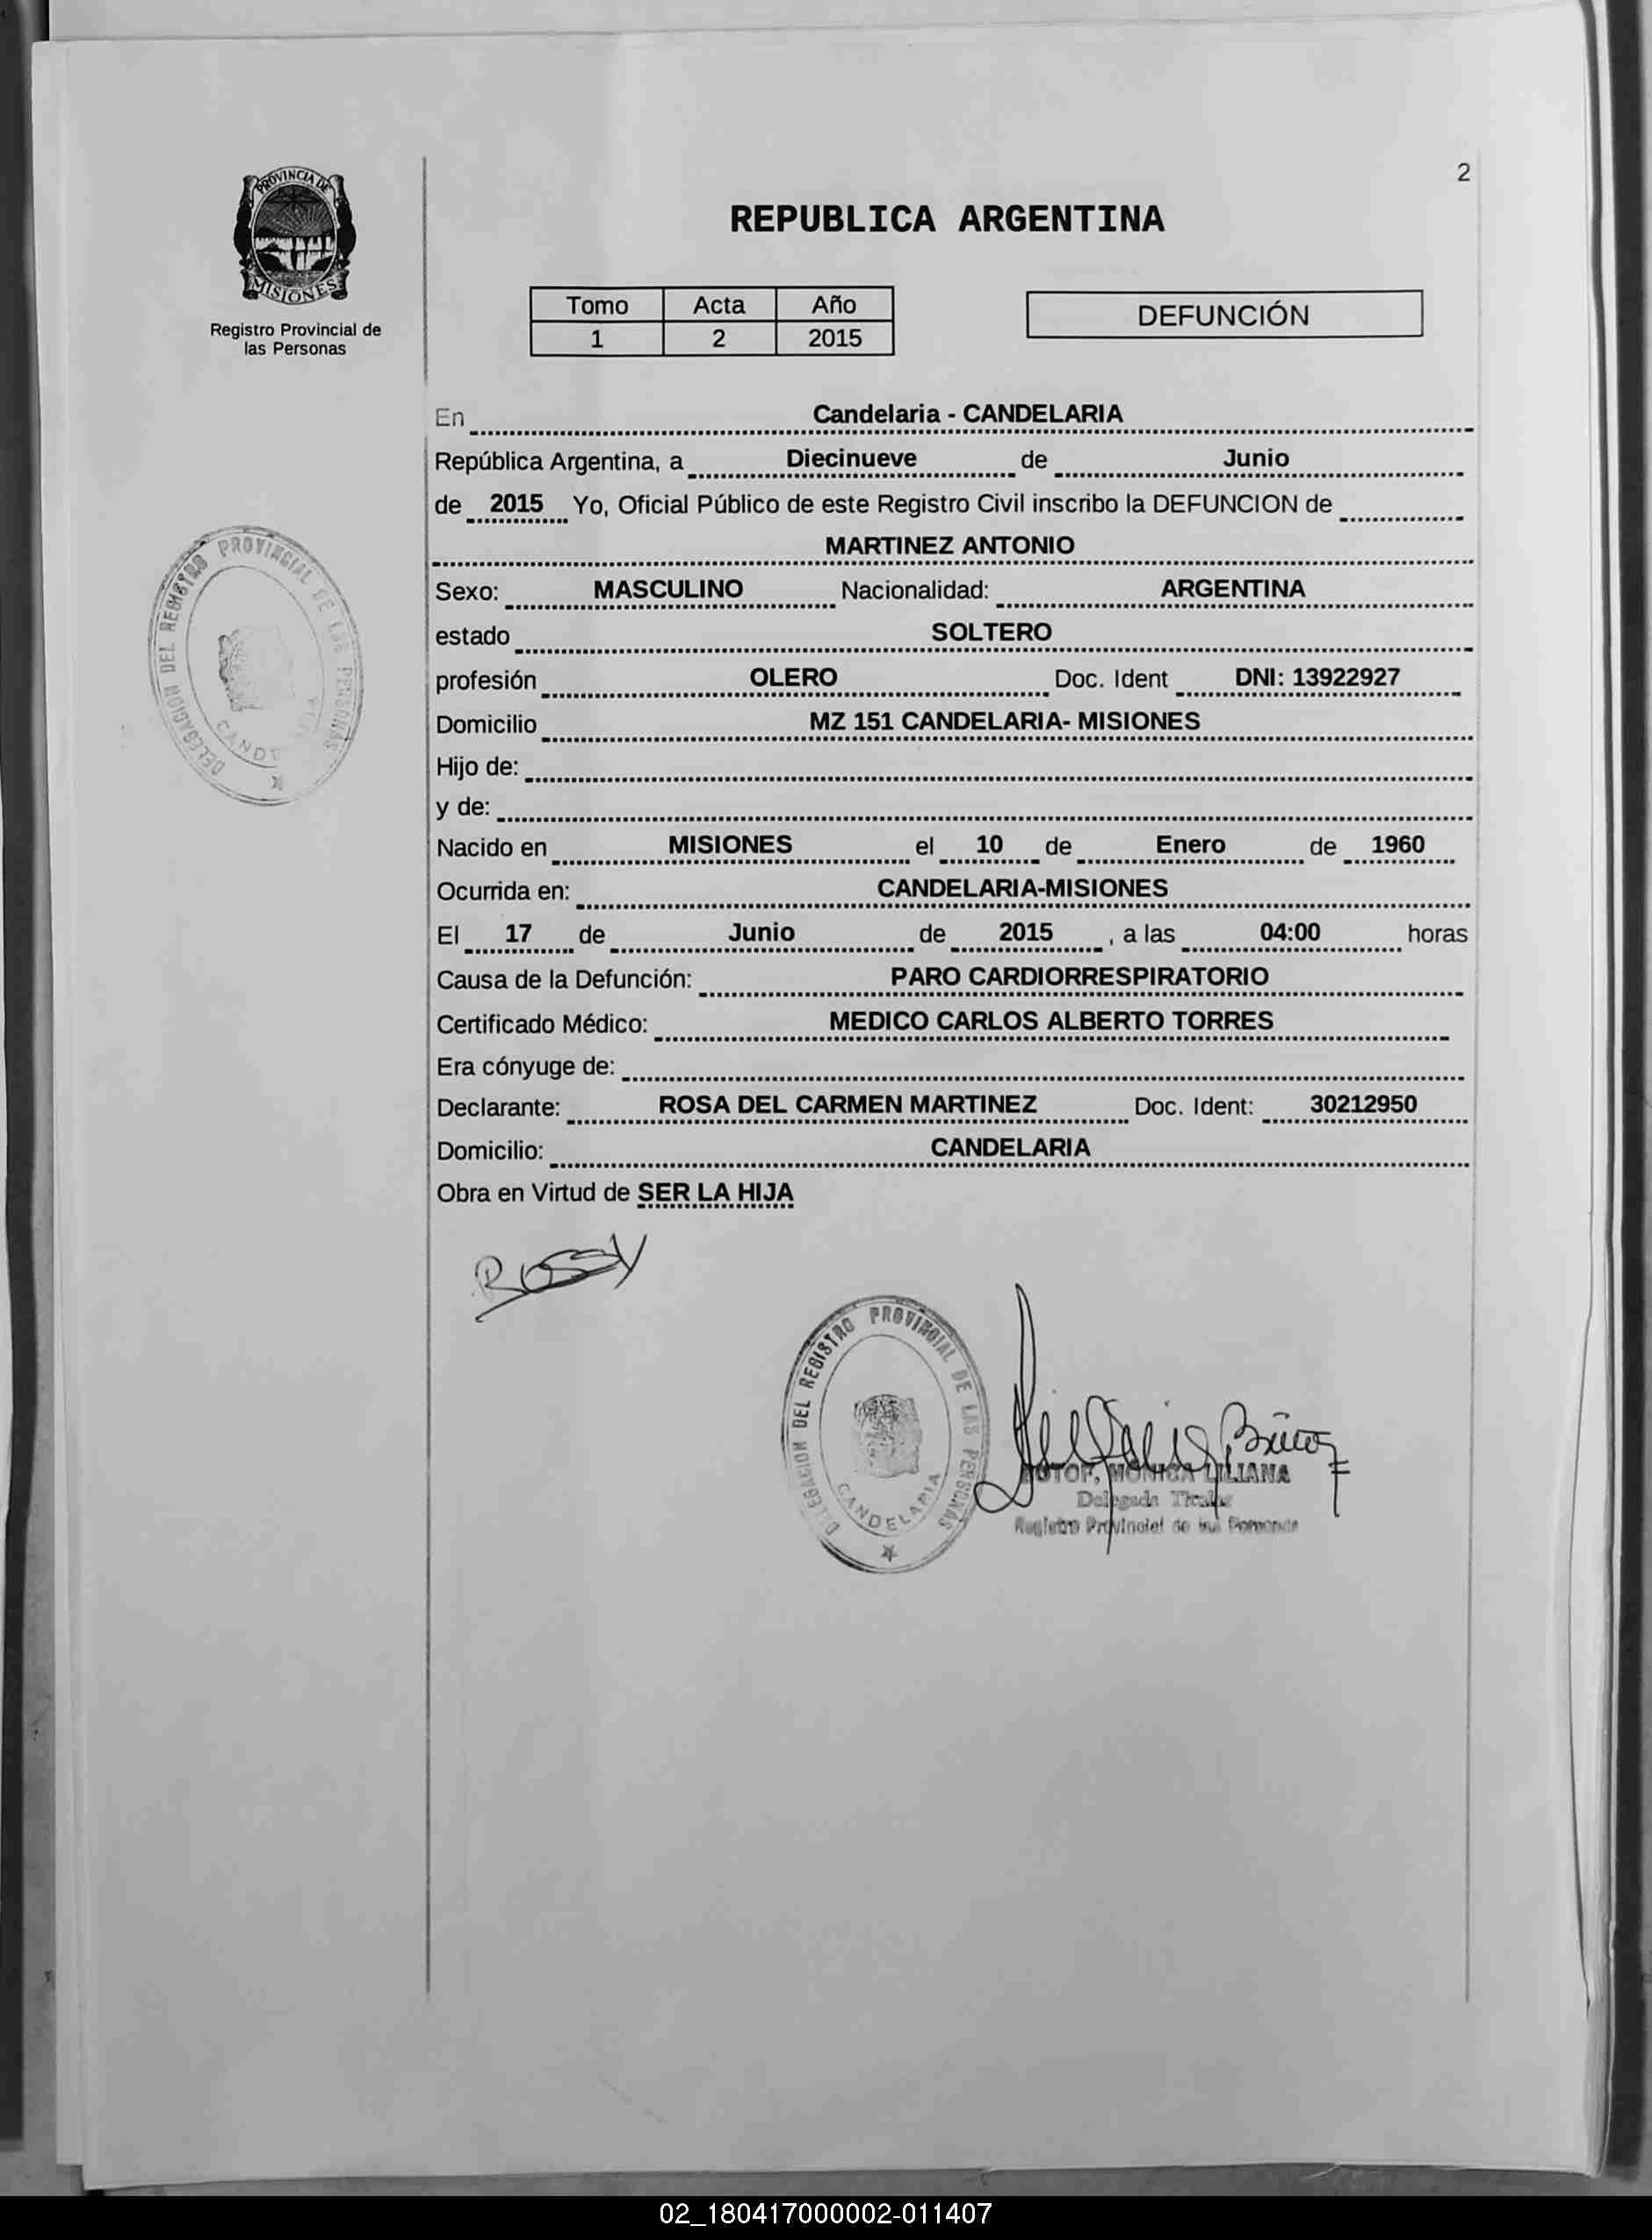 2
PROVINCIA DE
MISIONES
Registro Provincial de
las Personas
REPUBLICA ARGENTINA
Tomo Acta Año
1 2 2015
DEFUNCIÓN
En Candelaria - CANDELARIA
República Argentina, a Diecinueve de Junio
de 2015 Yo, Oficial Público de este Registro Civil inscribo la DEFUNCION de
MARTINEZ ANTONIO
Sexo: MASCULINO Nacionalidad: ARGENTINA
estado SOLTERO
profesión OLERO Doc. Ident DNI: 13922927
Domicilio MZ 151 CANDELARIA- MISIONES
Hijo de:
y de:
Nacido en MISIONES el 10 de Enero de 1960
Ocurrida en: CANDELARIA-MISIONES
El 17 de Junio de 2015 , a las 04:00 horas
Causa de la Defunción: PARO CARDIORRESPIRATORIO
Certificado Médico: MEDICO CARLOS ALBERTO TORRES
Era cónyuge de:
Declarante: ROSA DEL CARMEN MARTINEZ Doc. Ident: 30212950
Domicilio: CANDELARIA
Obra en Virtud de SER LA HIJA
DELEGACION DEL REGISTRO PROVINCIAL DE LAS PERSONAS
ROSSY
DELEGACION DEL REGISTRO PROVINCIAL DE LAS PERSONAS
CANDELARIA
MONICA LILIANA
Delegada Titular
Registro Provincial de las Personas
02_180417000002-011407